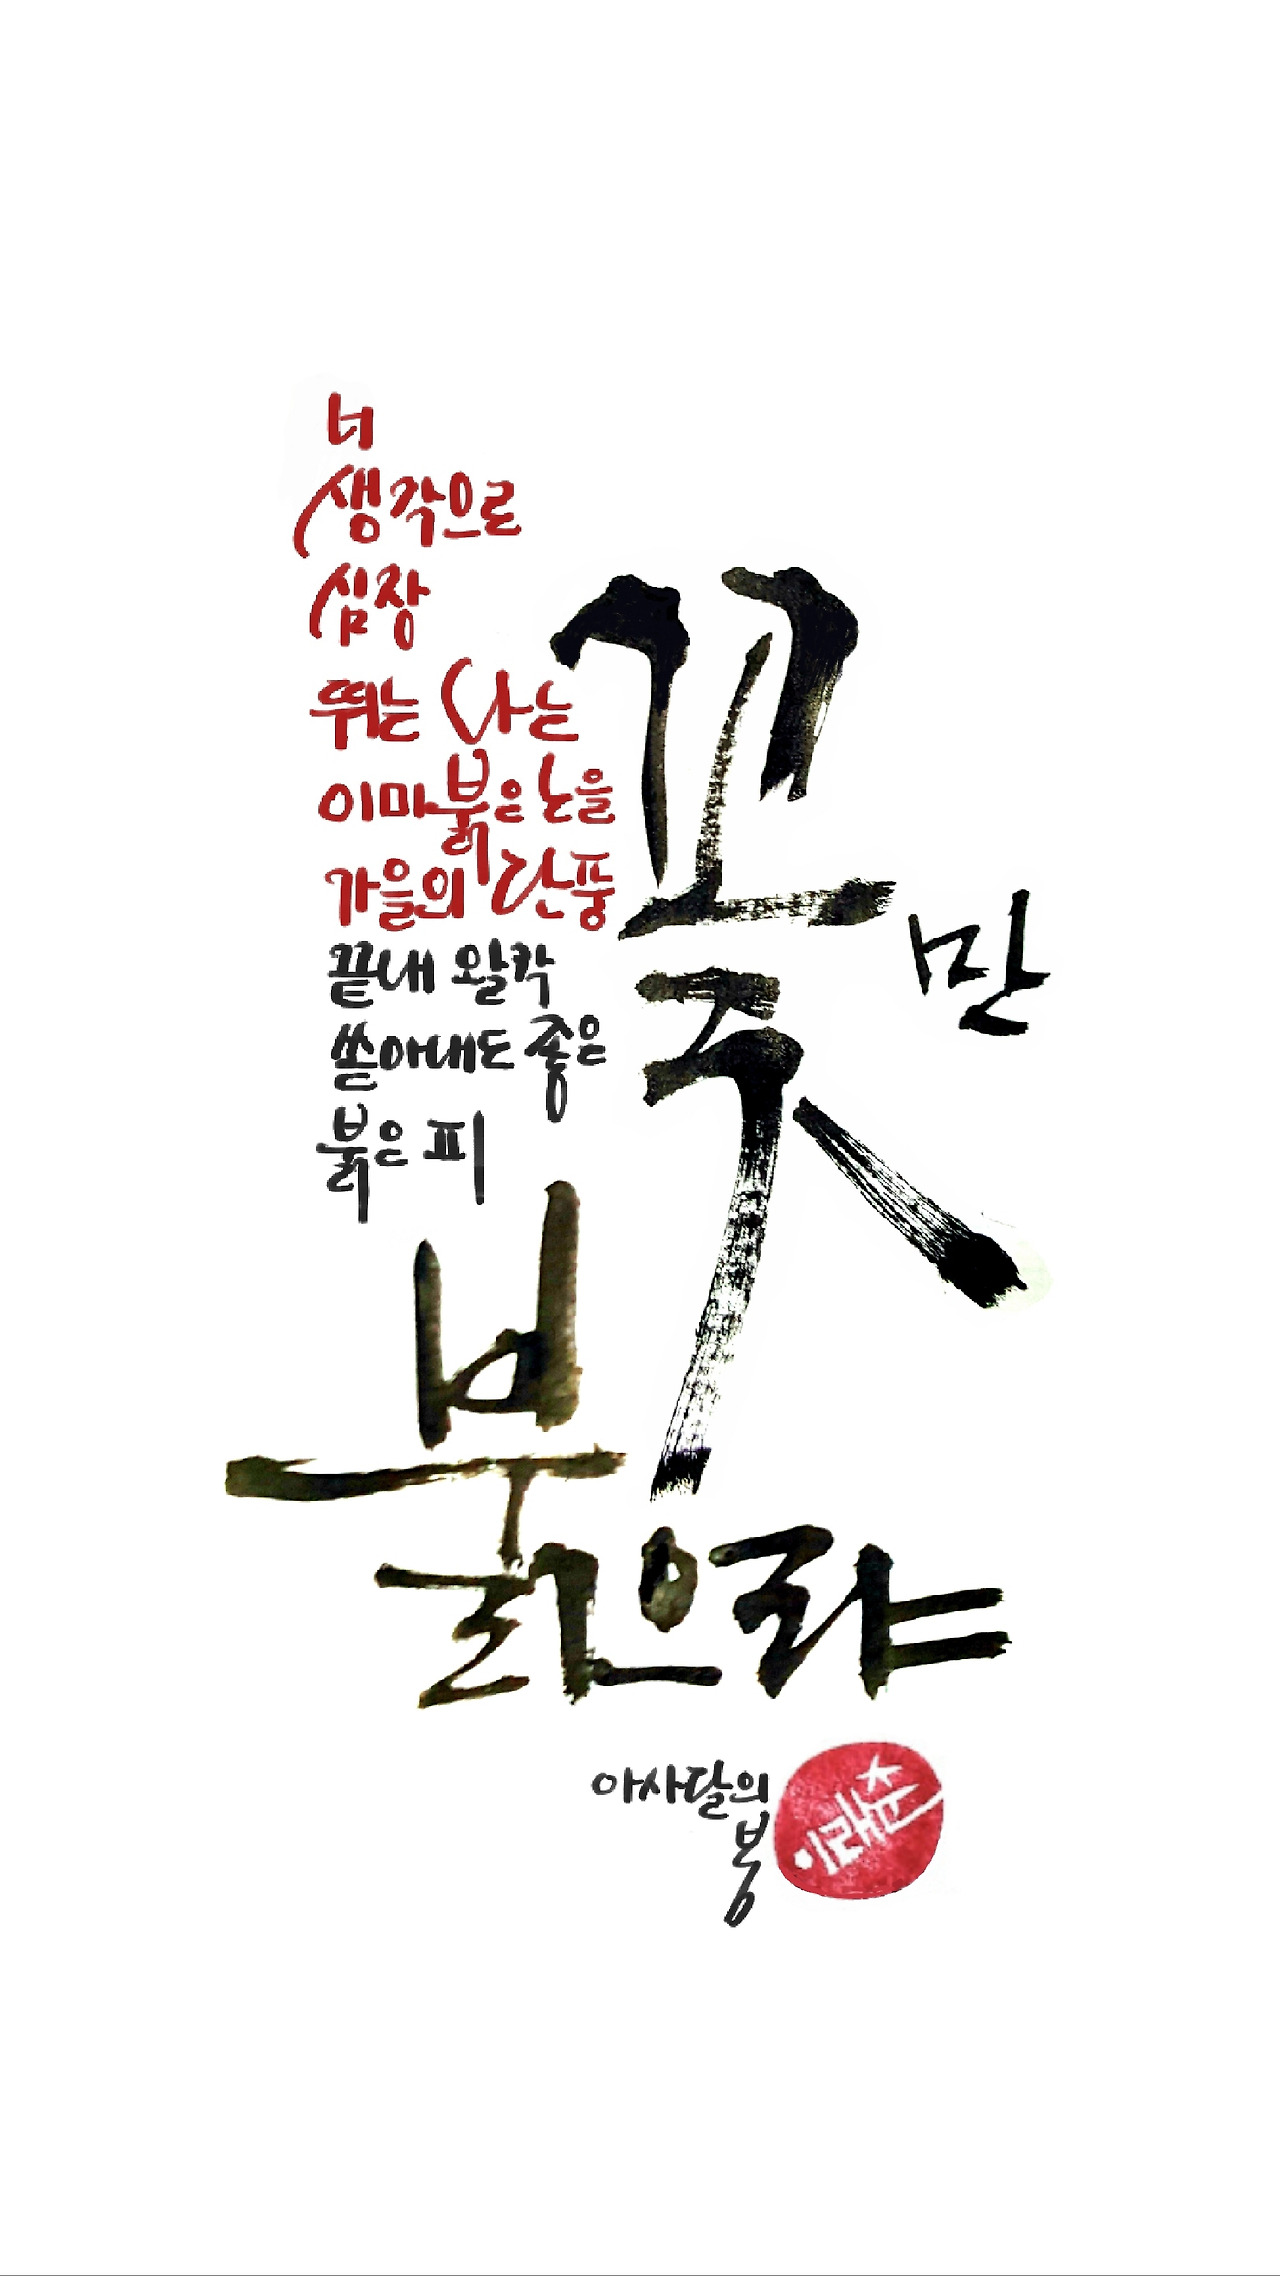 너
생각으로
심장
뛰는 나는
이마 붉은 노을
가을의 단풍
끝내 왈칵
쏟아내도 좋을
붉은 피
꽃만
붉으랴
아사달의
봄
이래춘